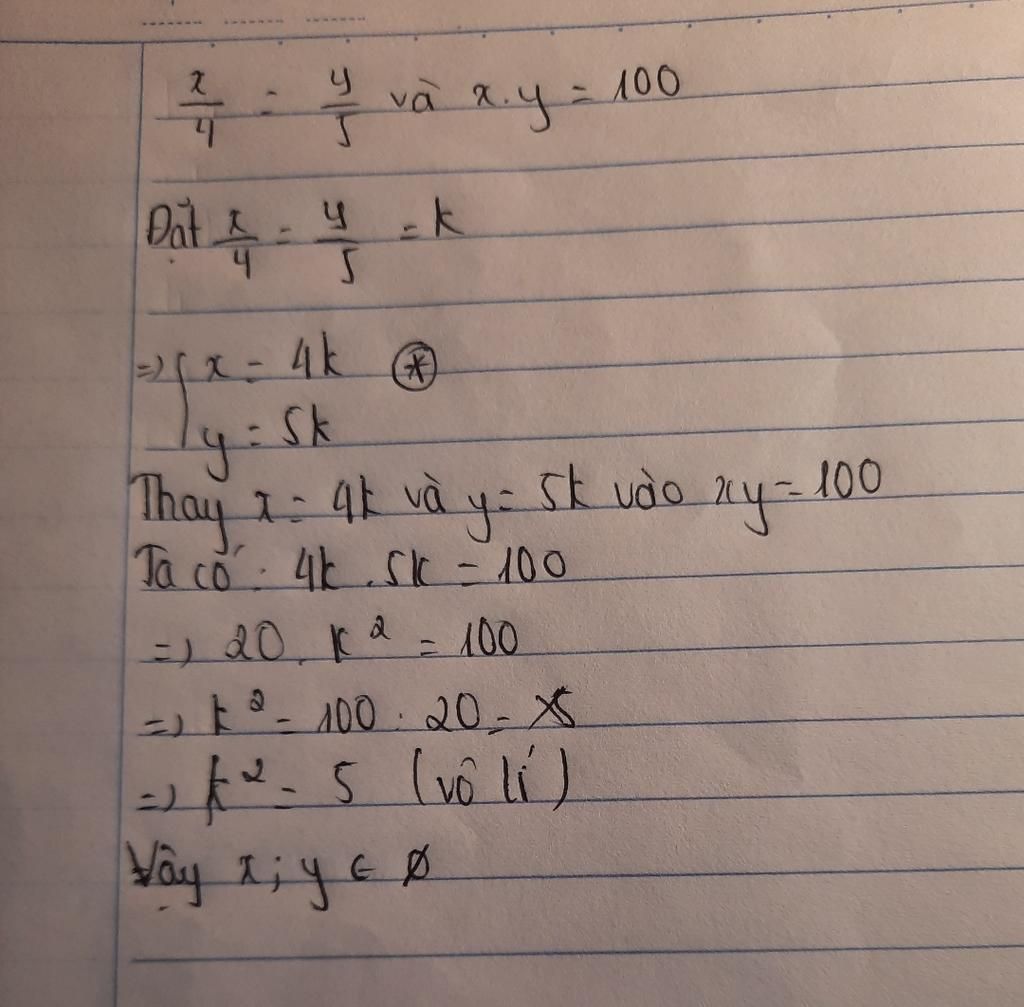 x/4 = y/5 và x.y = 100
Đặt x/4 = y/5 = k
=> { x = 4k (*)
y = 5k
Thay x = 4k và y = 5k vào xy = 100
Ta có : 4k . 5k = 100
=> 20 . k² = 100
=> k² = 100 : 20 =
=> k² = 5 (vô lí)
Vậy x ; y ∈ ∅